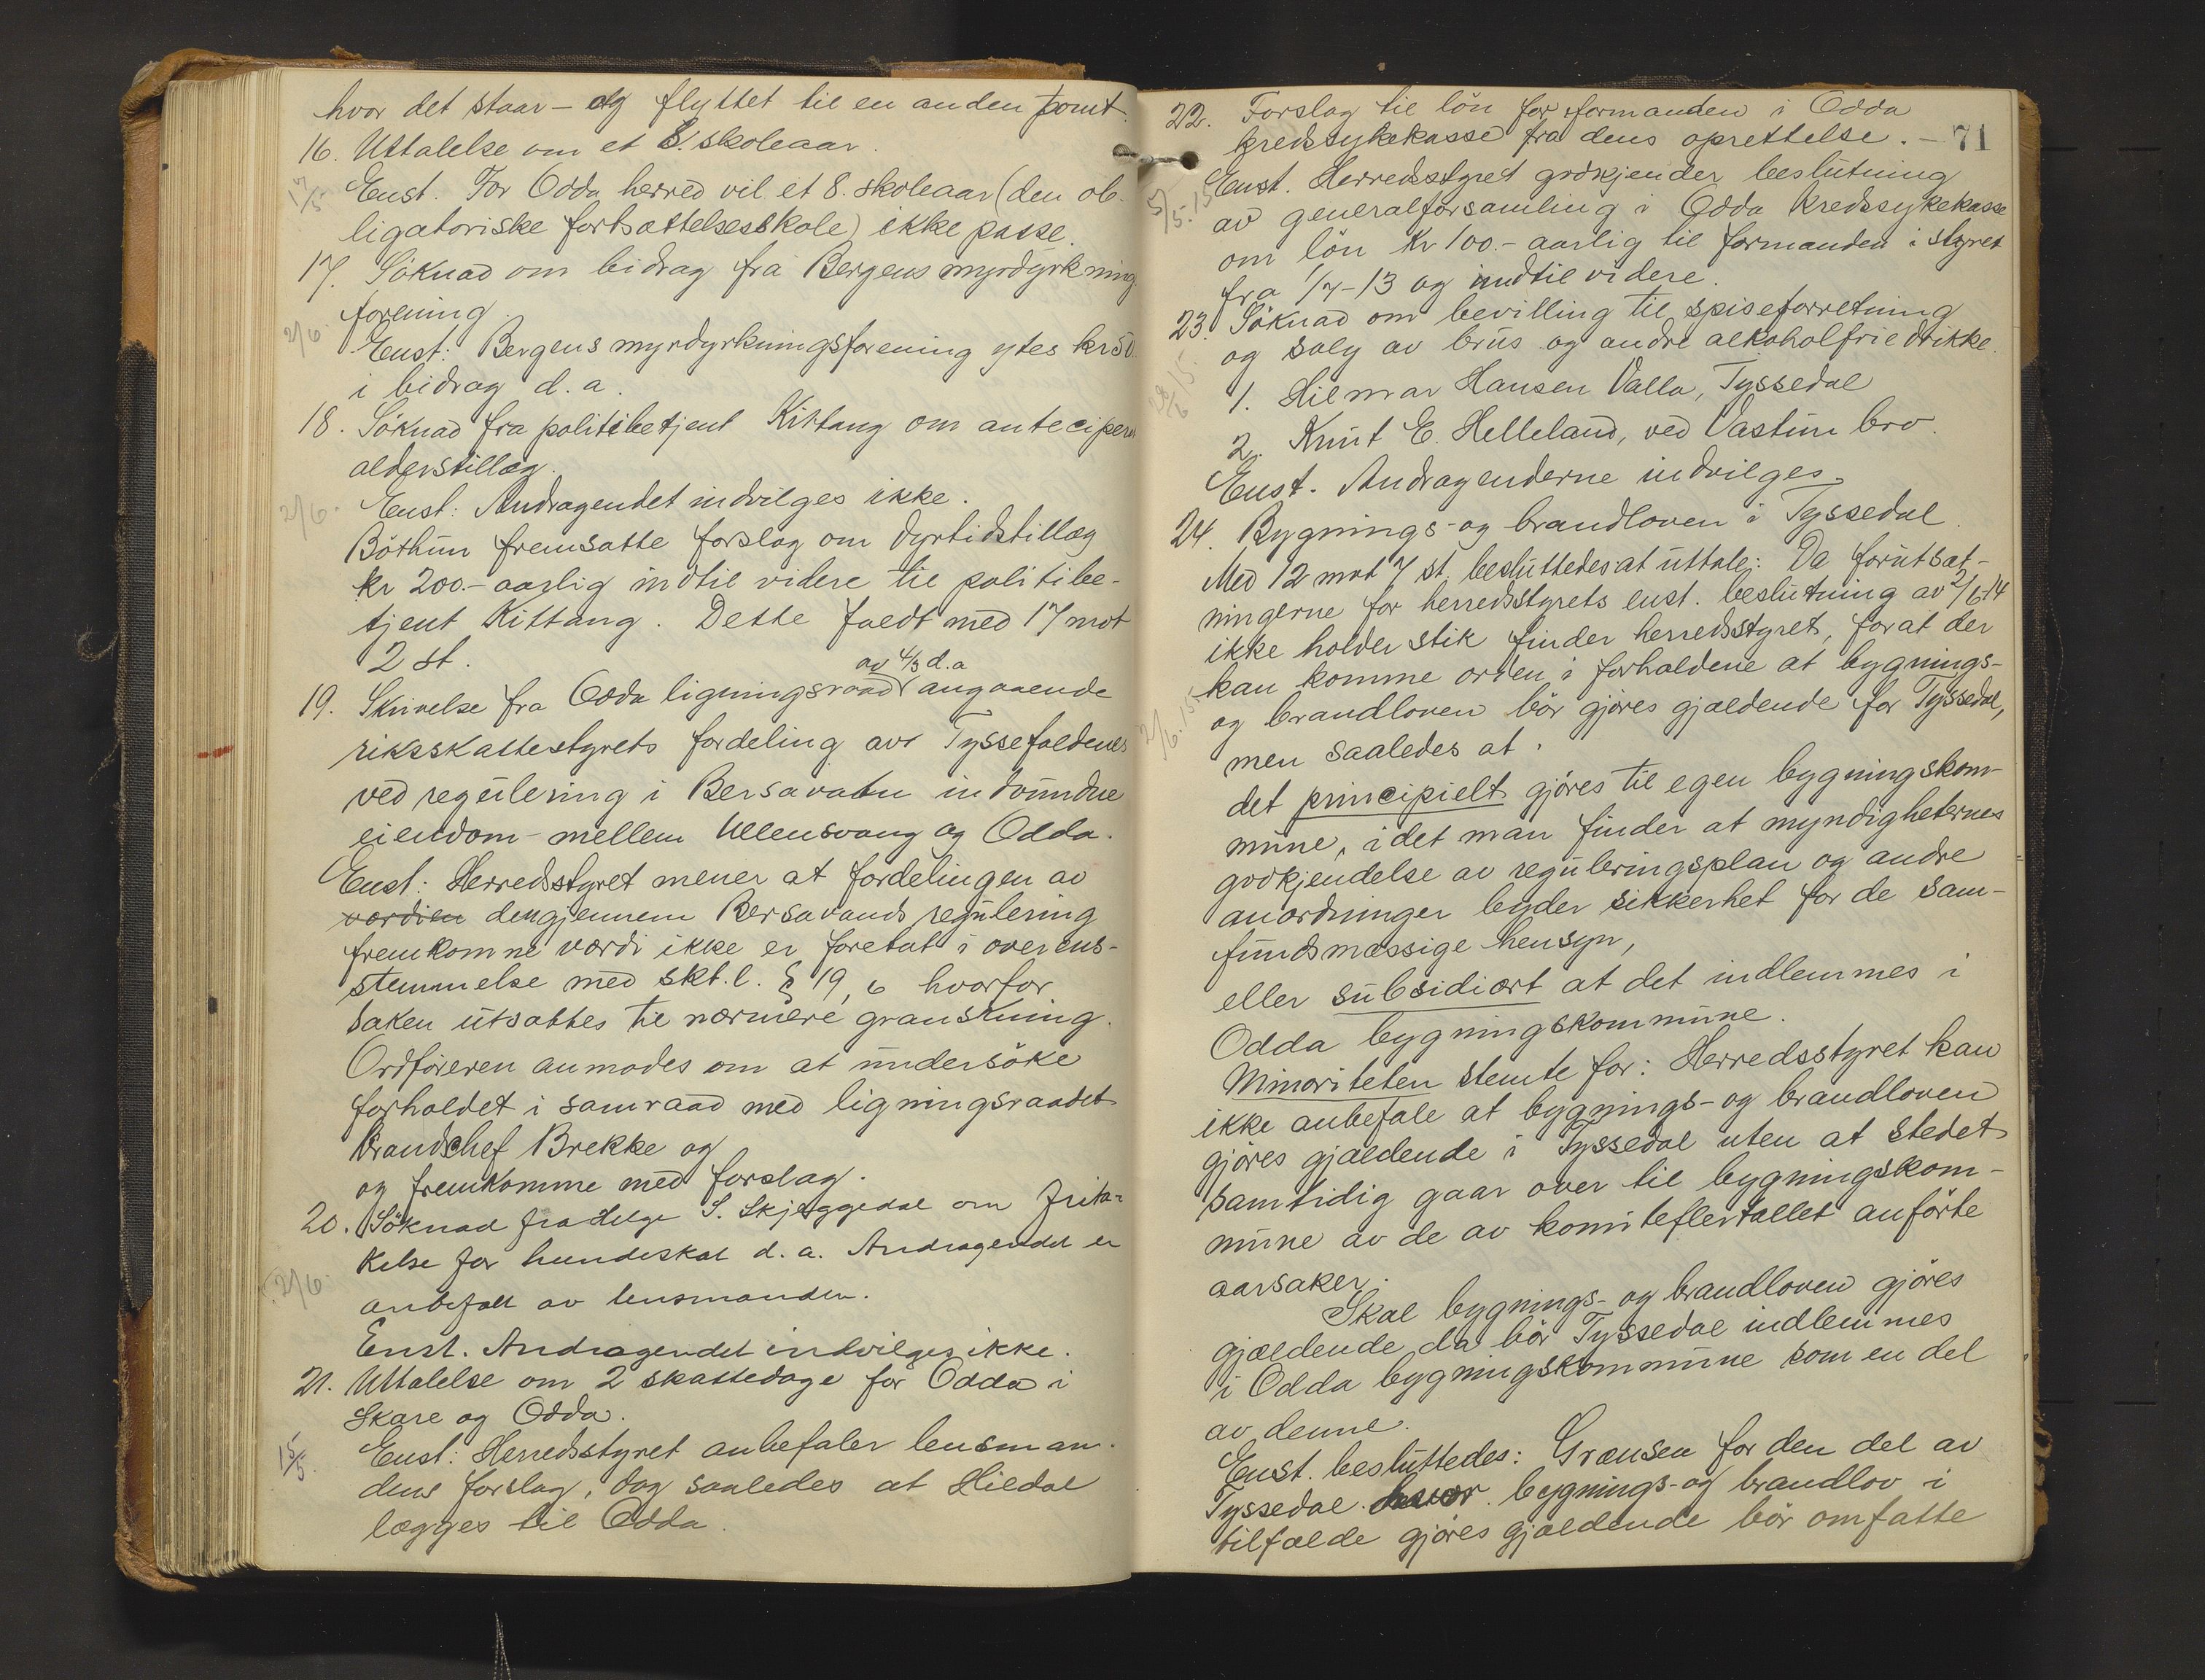 hvor det staar – og flyttet til en anden tomt.
16. Uttalelse om et 8. skoleaar.
17/5 Enst. For Odda herred vil et 8. skoleaar (den ob-
ligatoriske fortsættelsesskole) ikke passe.
17. Söknad om bidrag fra Bergens myrdyrkning
forening.
2/6 Enst: Bergens myrdyrkningsforening ytes kr 50.
i bidrag d.a.
18. Söknad fra politibetjent Kittang om antecipert
alderstillæg.
2/6. Enst: Andragendet indvilges ikke.
Böthun fremsatte forslag om dyrtidstillæg
kr 200.– aarlig indtil videre til politibe-
tjent Kittang. Dette faldt med 17 mot
2 st.
av 4/3 d.a
19. Skrivelse fra Odda ligningsraad angaaende
riksskattestyrets fordeling av Tyssefaldenes
ved regulering i Bersavatn indvundne
eiendom – mellem Ullensvang og Odda.
Enst: Herredsstyret mener at fordelingen av
værdien den gjennem Bersavands regulering
fremkomne værdi ikke er foretat i overens-
stemmelse med skt.l. § 19, 6 hvorfor
saken utsættes til nærmere granskning.
Ordføreren anmodes om at undersöke
forholdet i samraad med ligningsraadet
Brandchef Brekke og
og fremkomme med forslag.
20. Söknad fra Helge S. Skjeggedal om frita-
kelse for hundeskat d.a. Andragendet er
2/6. anbefalt av lensmanden.
Enst. Andragendet indvilges ikke.
21. Uttalelse om 2 skattedage for Odda i
Skare og Odda.
15/5. Enst: Herredsstyret anbefaler lensman-
dens forslag, dog saaledes at Hildal
lægges til Odda.
22. Forslag til lön for formanden i Odda
kredssykekasse fra dens oprettelse. – 71
Enst. Herredsstyret godkjender beslutning
av generalforsamling i Odda kredssykekasse
om lön kr 100.– aarlig til formanden i styret
fra 1/7–13 og indtil videre.
23. Söknad om bevilling til spiseforretning
og salg av brus og andre alkoholfrie drikke.
1. Hilmar Hansen Valla, Tyssedal
2. Knut E. Helleland, ved Vastun bro.
Enst. Andragenderne indvilges.
24. Bygnings- og brandloven i Tyssedal.
Med 12 mot 7 st. besluttedes at uttale: Da forutsæt-
ningerne for herredsstyrets enst. beslutning av 2/6 14
ikke holder stik finder herredsstyret, forat der
kan komme orden i forholdene at bygnings-
2/6.15 og brandloven bör gjöres gjældende for Tyssedal,
men saaledes at:
det principielt gjöres til egen bygningskom-
mune, idet man finder at myndigheternes
godkjendelse av reguleringsplan og andre
anordninger byder sikkerhet for de sam-
fundsmæssige hensyn,
eller subsidiært at det indlemmes i
Odda bygningskommune.
Minoriteten stemte for: Herredsstyret kan
ikke anbefale at bygnings- og brandloven
gjöres gjældende i Tyssedal uten at stedet
samtidig gaar over til bygningskom-
mune av de av komiteflertallet anförte
aarsaker.
Skal bygnings- og brandloven gjöres
gjældende da bör Tyssedal indlemmes
i Odda bygningskommune som en del
av denne.
Enst. besluttedes: Grænsen for den del av
Tyssedal hvor bygnings- og brandlov i
tilfælde gjöres gjældende bör omfatte